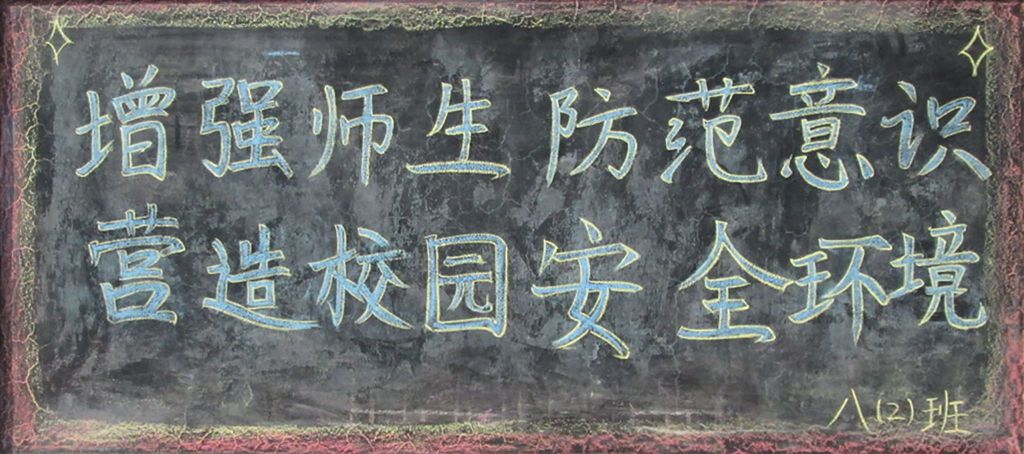 增强师生防范意识
营造校园安全环境
八(2)班